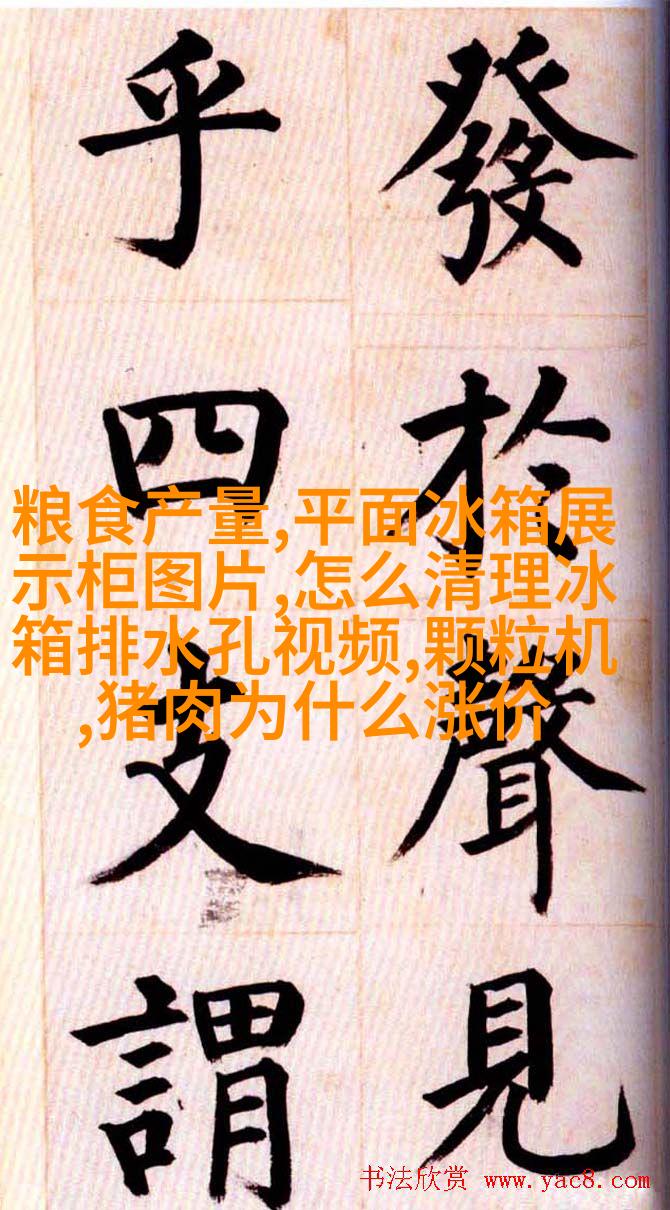 發於聲見
乎四支謂
粮食产量,平面冰箱展
示柜图片,怎么清理冰
箱排水孔视频,颗粒机
,猪肉为什么涨价
书法欣赏 www.yac8.com